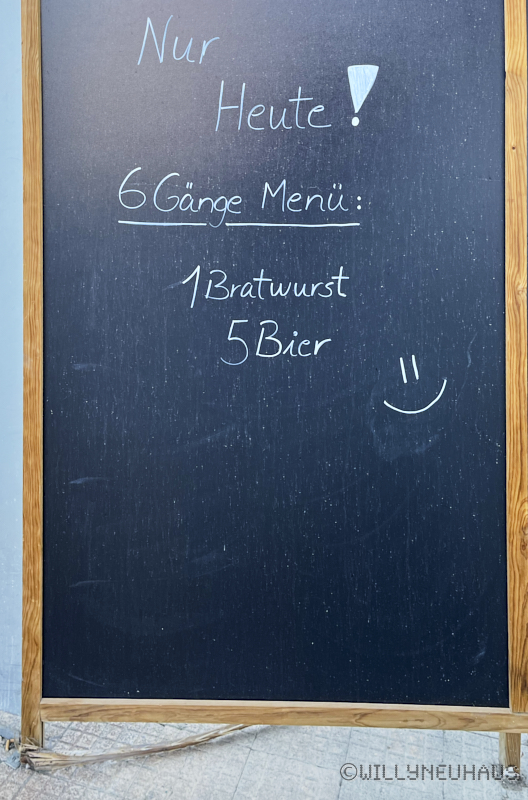 Nur
Heute!
6 Gänge Menü:
1 Bratwurst
5 Bier
©WILLYNEUHAUS